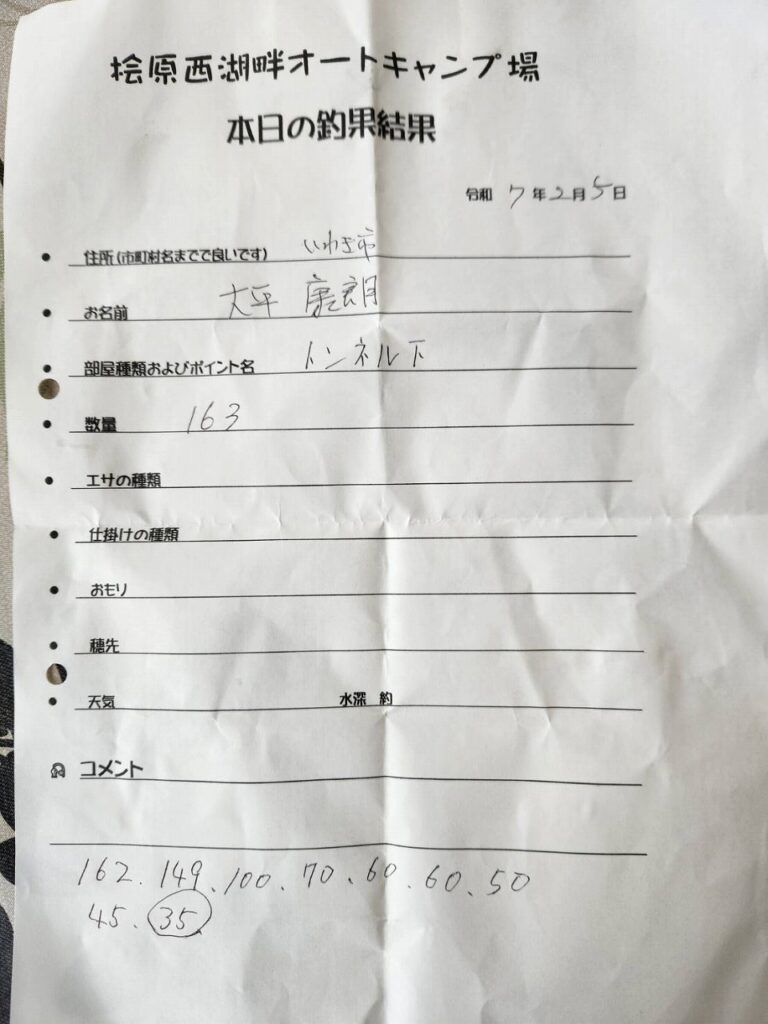 桧原西湖畔オートキャンプ場
本日の釣果結果
令和 7 年 2 月 5 日
住所(市町村名までで良いです) いわき市
お名前 大平 康朗
部屋種類およびポイント名 トンネル下
数量 163
エサの種類
仕掛けの種類
おもり
穂先
天気 水深 約
コメント
162. 149. 100. 70. 60. 60. 50
45. 35